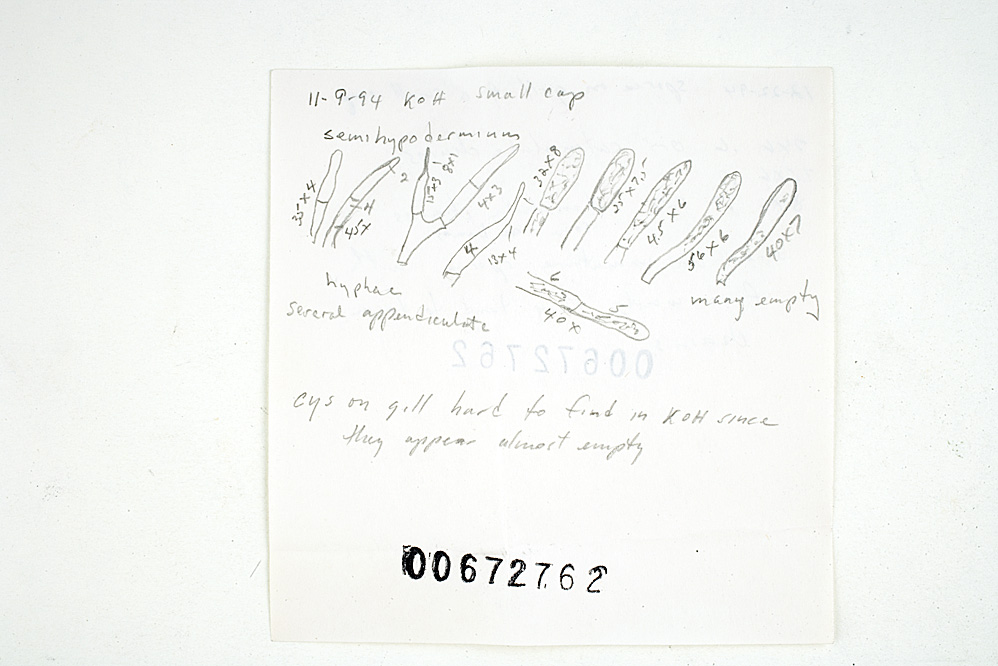 11-9-94 KOH small cap
semihypodermium
35 x 4
2
4
45x
15 x 3
8x1
4 x 3
4
13 x 4
32 x 8
35 x 7.5
45 x 6
56 x 6
40 x 7
hyphae
several appendiculate
6
5
40 x
many empty
cys on gill hard to find in KOH since
they appear almost empty
00672762